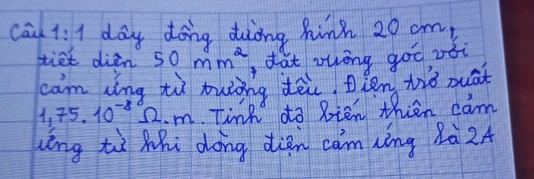 Câu 1: 1 dây đồng đường kính 20 cm,
tiết diện 50 mm², đặt vuông góc với
cảm ứng từ trường đều. Điện trở suất
1,75.10⁻⁸ Ω.m. Tính độ biến thiên cảm
ứng từ khi dòng điện cảm ứng là 2A